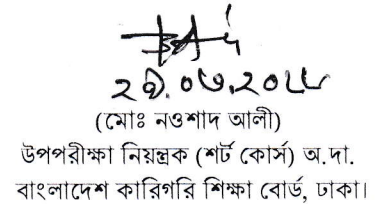 (মোঃ নওশাদ আলী)
উপপরীক্ষা নিয়ন্ত্রক (শর্ট কোর্স) অ.দা.
বাংলাদেশ কারিগরি শিক্ষা বোর্ড, ঢাকা।